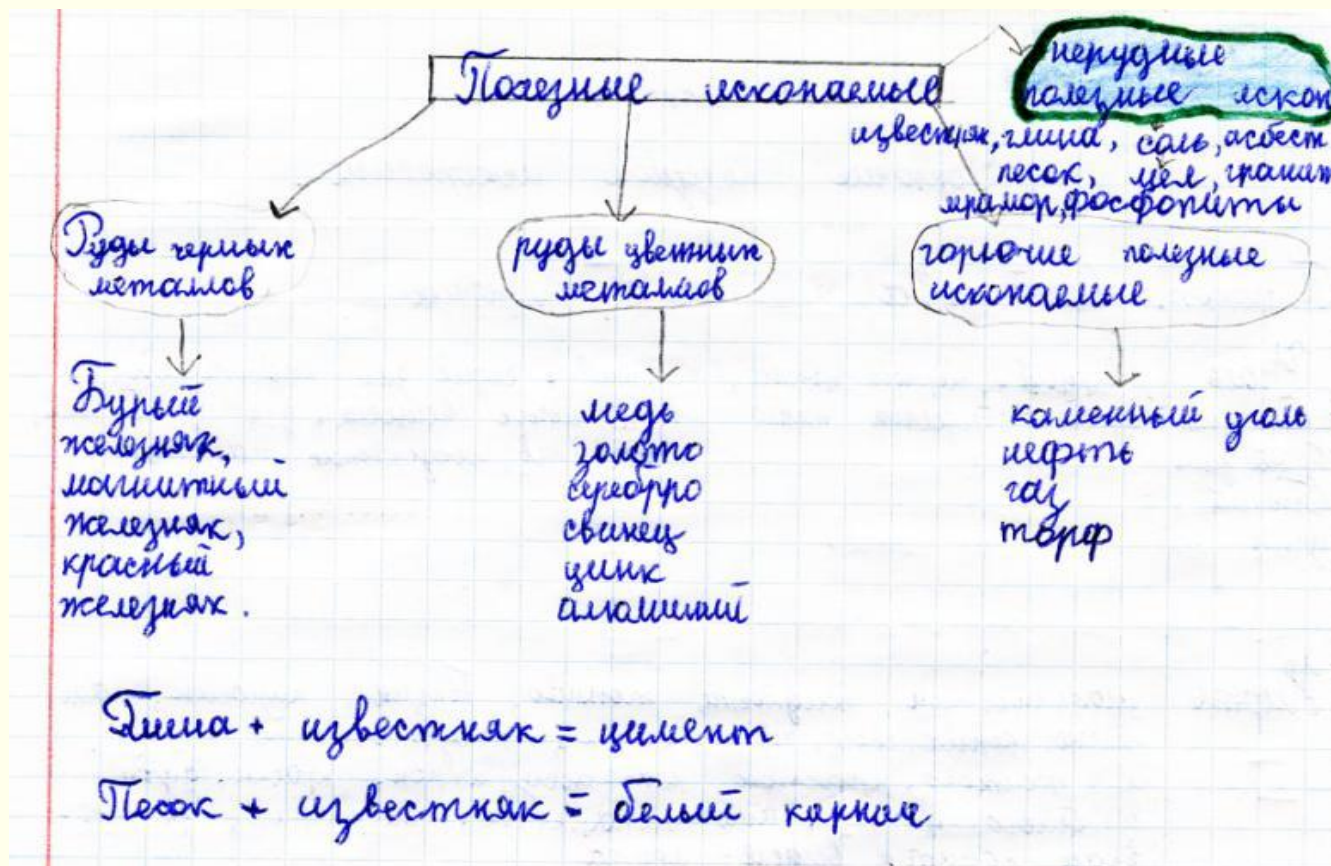 Полезные ископаемые
нерудные
полезные ископ
известняк, глина, соль, асбест
песок, мел, гранит
мрамор, фосфориты
Руды черных
металлов
руды цветных
металлов
горючие полезные
ископаемые.
Бурый
железняк,
магнитный
железняк,
красный
железняк.
медь
золото
серебрро
свинец
цинк
алюминий
каменный уголь
нефть
газ
торф
Глина + известняк = цимент
Песок + известняк = белый